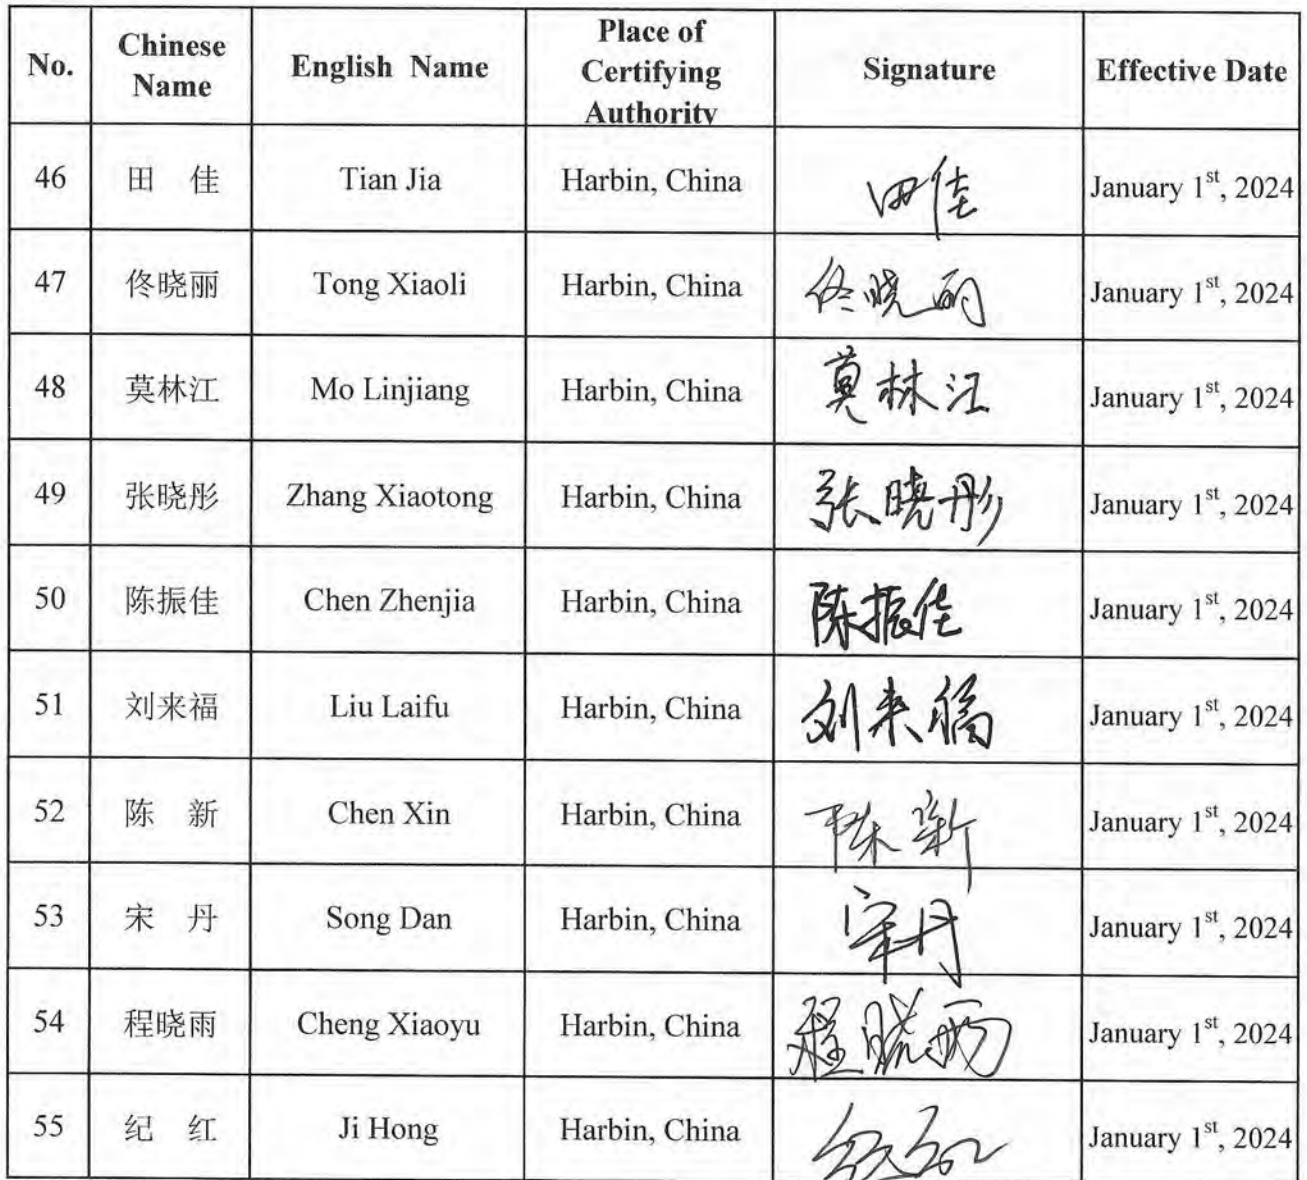 No. Chinese Name English Name Place of Certifying Authority Signature Effective Date
46 田 佳 Tian Jia Harbin, China 田佳 January 1st, 2024
47 佟晓丽 Tong Xiaoli Harbin, China 佟晓丽 January 1st, 2024
48 莫林江 Mo Linjiang Harbin, China 莫林江 January 1st, 2024
49 张晓彤 Zhang Xiaotong Harbin, China 张晓彤 January 1st, 2024
50 陈振佳 Chen Zhenjia Harbin, China 陈振佳 January 1st, 2024
51 刘来福 Liu Laifu Harbin, China 刘来福 January 1st, 2024
52 陈 新 Chen Xin Harbin, China 陈新 January 1st, 2024
53 宋 丹 Song Dan Harbin, China 宋丹 January 1st, 2024
54 程晓雨 Cheng Xiaoyu Harbin, China 程晓雨 January 1st, 2024
55 纪 红 Ji Hong Harbin, China 纪红 January 1st, 2024